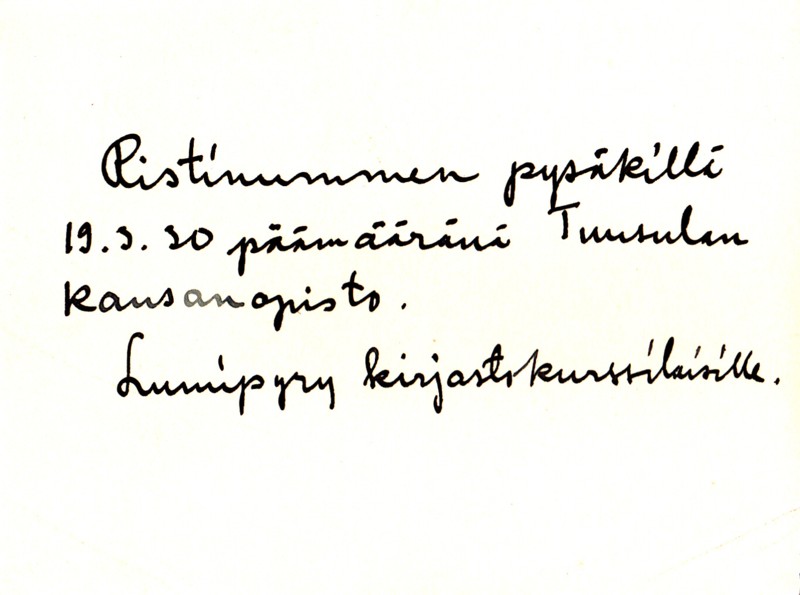 Ristinummen pysäkillä
19.3.30 päämääränä Tuusulan
kansanopisto.
Lumipyry kirjastokurssilaisille.